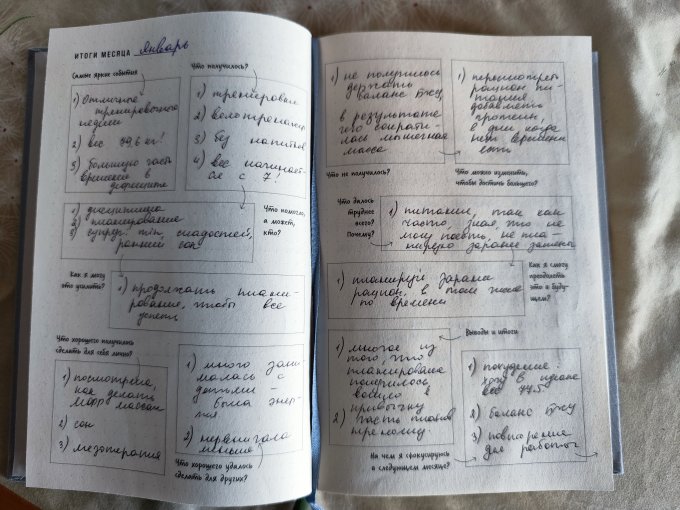 ИТОГИ МЕСЯЦА Январь
Самые яркие события
1) Отличные
тренировочные
недели
2) вес 79,6 кг!
3) большую часть
времени в
дефиците
Что получилось?
1) тренировки
2) велотренажер
3) без напитков
4) вес начинает-
ся с 7!
1) дисциплина
2) планирование
3) сладостей,
ранний сон
Что помогло,
а может,
кто?
Как я могу
это усилить?
1) продолжать плани-
рование, чтобы все
успеть
Что хорошего получилось
сделать для себя лично?
1) посмотрела,
как делать
2) сон
3) мезотерапия
1) много зани
малась с
детьми -
была энер-
гия.
2)
меньше
Что хорошего удалось
сделать для других?
1) не получилось
держать
баланс бжу,
в результате
чего сократи-
лась мышечная
масса
Что не получилось?
1) пересмотреть
рацион пи-
тания,
добавлять
протеин,
в дни, когда
нет времени
есть
Что можно изменить,
чтобы достичь большего?
Что далось
труднее
всего?
Почему?
1) питание, так как
часто, зная, что не
могу поесть, не пла-
нирую заранее замены
1) планируя заранее
рацион, в том числе
по времени
Как я смогу
преодолеть
это в буду-
щем?
Выводы и итоги
1) многое из
того, что
планировала
получилось,
вошло в
привычку
2) часть планов
1) похудение:
хочу в идеале
вес 77,5
2) баланс бжу
3) повторение
для работы
На чем я сфокусируюсь
в следующем месяце?